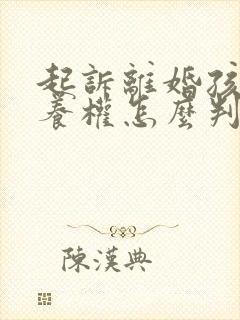 起訴離婚孩
養權怎麼判
陳漢典